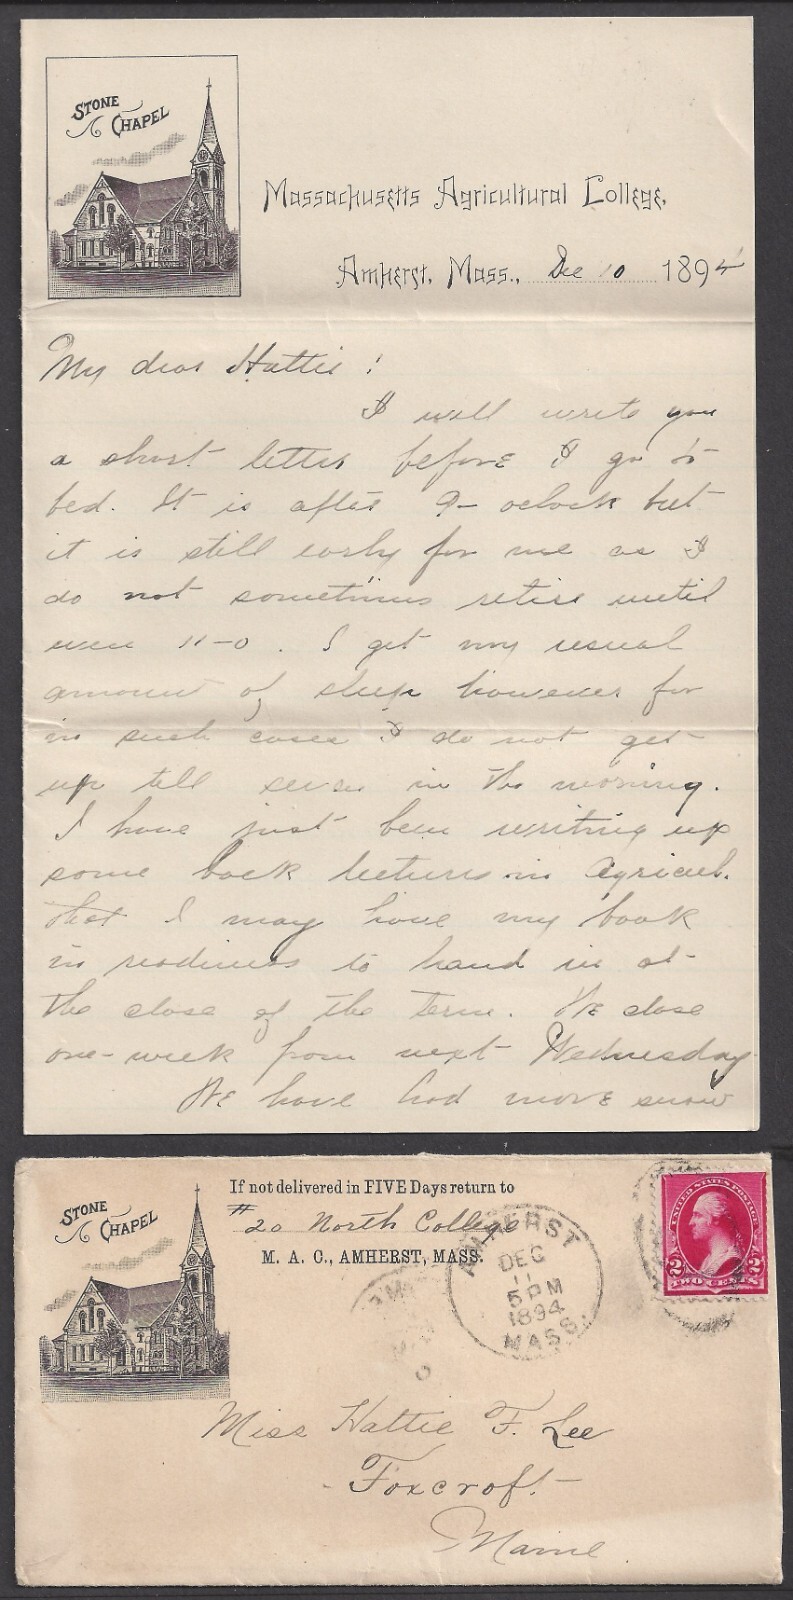 STONE
CHAPEL
Massachusetts Agricultural College,
Amherst, Mass., Dec 10 1894
My dear Hattie!
I will write you
a short letter before I go to
bed. It is after 9- oclock but
it is still early for me as I
do not sometimes retire until
even 11-0. I get my usual
amount of sleep however for
in such cases I do not get
up till seven in the morning.
I have just been writing up
some back lectures in Agricul.
that I may have my book
in readiness to hand in at
the close of the term. We close
one-week from next Wednesday.
We have had more snow
STONE
CHAPEL
If not delivered in FIVE Days return to
# 20 North College
M. A. C., AMHERST, MASS.
AMHERST
DEC
11
5 PM
1894
MASS.
UNITED STATES POSTAGE
2 2
TWO CENTS
Miss Hattie F. Lee
Foxcroft
Maine